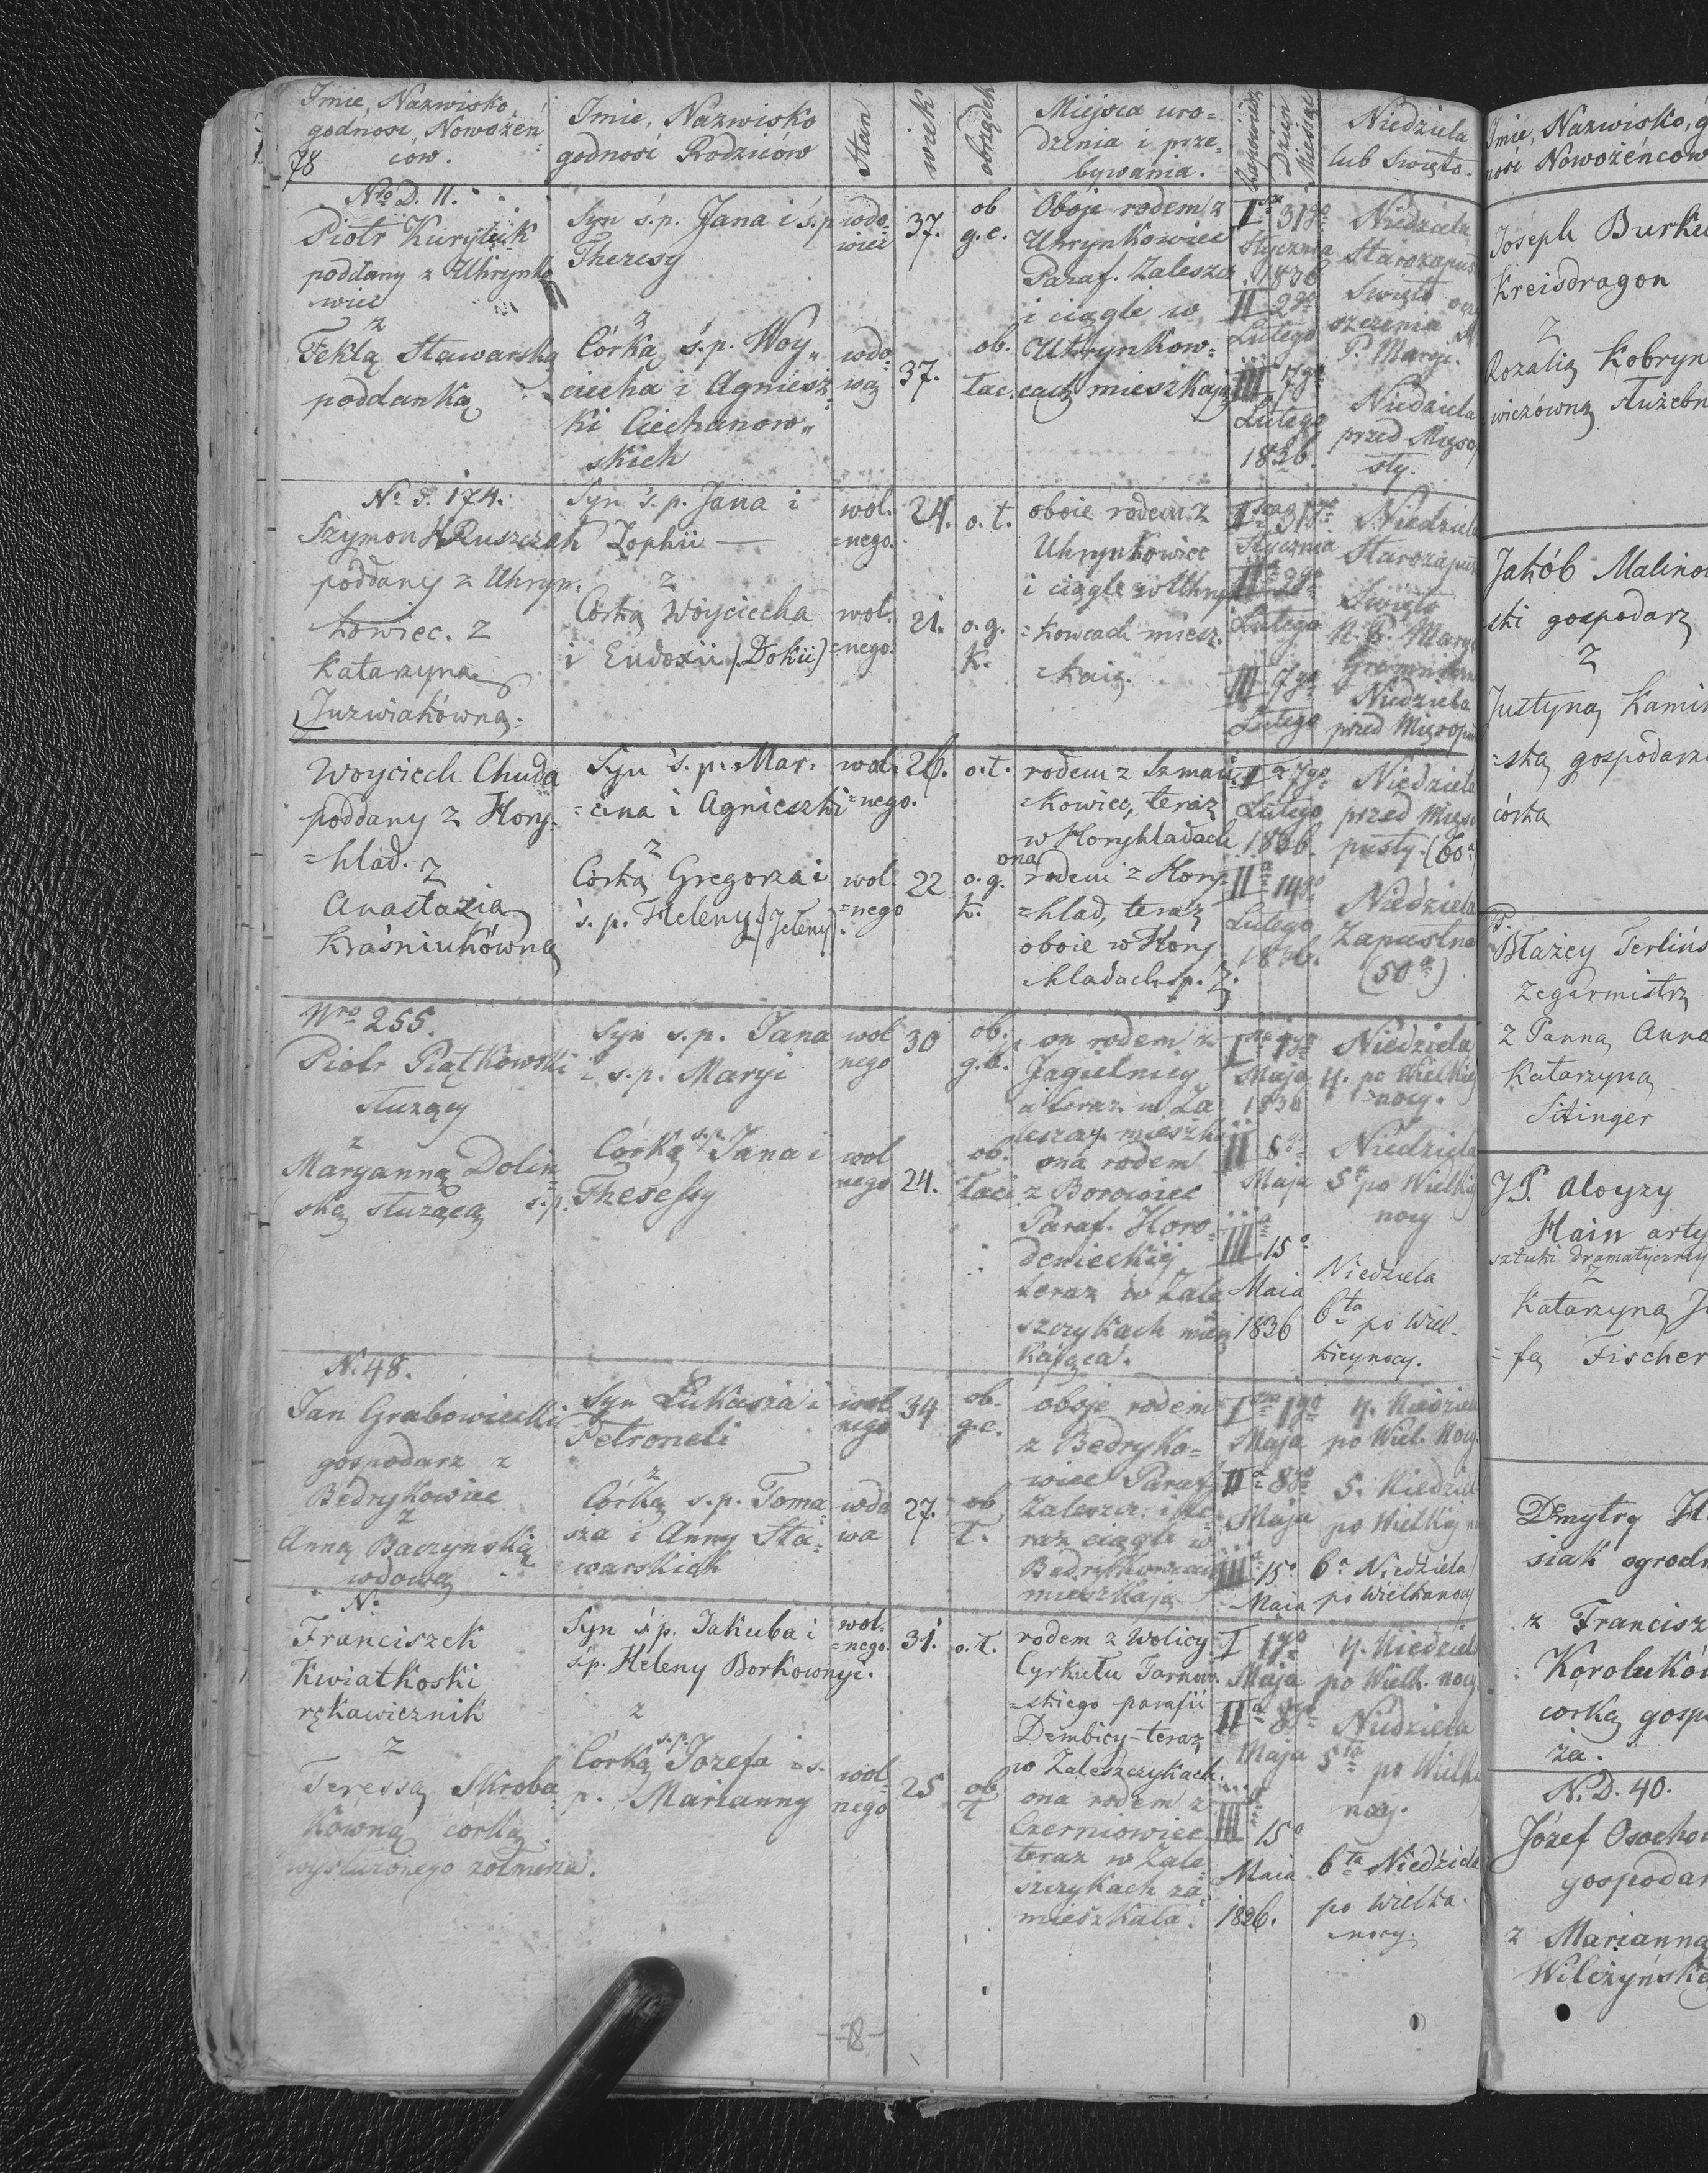 Imie, Nazwisko,
godność, Nowożeń
ców.
78
Imie, Nazwisko
godność Rodziców
Stan
wiek
obrządek
Miejsca uro-
dzenia i prze-
bywania.
Zapowiedź
Dzień
Miesiąc
Niedziela
lub Święto.
Nro D. 11.
Piotr Kuryluk
poddany z Uhrynko
wiec
z
Teklą Stawarską
poddanką
Syn ś.p. Jana i ś.p
Theresy
z
Córką ś.p. Woy„
ciecha i Agniesz
ki Ciechanow„
skich
wdo-
wiec
wdo-
wą
37.
37.
ob
g.c.
ob.
łac.
Oboje rodem z
Uhrynkowiec
Paraf. Zaleszcz.
i ciągle w
Uhrynkow-
cach mieszkają
I 31go
Stycznia
1836
II 2go
Lutego
III 7go
Lutego
1836.
Niedziela
Starozapus
Święto
szczenia N
P. Maryi.
Niedziela
przed Mięso
sty.
No S. 174.
Szymon Ruszczak
poddany z Uhryn.
kowiec. z
Katarzyną
Juzwiakówną.
Syn ś.p. Jana i
Zophii —
z
Córką Woyciecha
i Eudoxii (Dokii)
wol.
=nego.
wol.
=nego.
24.
21.
o. ł.
o. g.
k.
oboie rodem z
Uhrynkowiec
i ciągle w Uhryn
=kowcach miesz.
=kaią.
I 31go
Stycznia
II 2go
Lutego
III 7go
Lutego
Niedziela
Starozapus
Święto
N. P. Maryi
Gromniczn
Niedziela
przed Mięsopu
Woyciech Chuda
poddany z Hory-
=hlad. z
Anastazią
Kraśniukówną
Syn ś.p. Mar.
=cina i Agnieszki
z
Córką Gregorza i
ś.p. Heleny (Jeleny)
wol-
=nego.
wol
=nego
26.
22
o.ł.
o.g.
k.
rodem z Szmań
kowiec, teraz
w Horyhladach
ona
rodem z Hory-
=hlad, teraz
oboie w Hory
hladach sp. z.
I 7go
Lutego
1836.
II 14go
Lutego
1836.
Niedziela
przed Mięso
pusty. (60a
Niedziela
Zapustna
(50a)
Nro 255.
Piotr Piątkowski
służący
z
Maryanną Dolin
ską służącą
Syn ś.p. Jana
i ś.p. Maryi
Córką ś.p. Jana i
ś.p. Theressy
wol
nego
wol
nego
30
24.
ob.
g.c.
ob.
łaci
on rodem z
Jagielnicy
a teraz w Za
leszczy. mieszka
ona rodem
z Borowiec
Paraf. Horo-
denieckiej
teraz w Zale
szczykach miesz
kająca.
I 1go
Maja
1836
II 8go
Maja
III 15o
Maia
1836
Niedziela
4. po Wielkiej
nocy.
Niedziela
5a po Wielkiej
nocy
Niedziela
6ta po Wiel-
kieynocy.
N. 48.
Jan Grabowiecki
gospodarz z
Bedrykowiec
z
Anną Baczynską
wdową
Syn Łukasza i
Petroneli
z
Córką ś.p. Toma
sza i Anny Sta-
warskich
wol
nego
wdo
wa
34
27.
ob.
g.c.
ob
ł.
oboje rodem
z Bedryko-
wiec Paraf.
Zaleszcz. i te-
raz ciągle w
Bedrykowcach
mieszkają
I 1go
Maja
II 8go
Maja
III 15o
Maia
4. Niedziela
po Wiel. Nocy.
5. Niedziel
po Wielkiej no
6a Niedziela
po Wielkanocy
No
Franciszek
Kwiatkoski
rękawicznik
z
Teressą Skroba
kówną córką
wysłużonego żołnierza.
Syn ś.p. Jakuba i
ś.p. Heleny Borkownyi.
z
Córką ś.p. Jozefa i ś.
p. Marianny
wol-
=nego.
wol-
nego
31.
25
o. ł.
ob
ł
rodem z Wolicy
Cyrkułu Tarnow.
=skiego parafii
Dembicy-teraz
w Zaleszczykach.
ona rodem z
Czerniowiec
teraz w Zale
szczykach za-
mieszkała.
I 1go
Maja
II 8go
Maja
III 15o
Maia
1836.
4. Niedziel
po Wielk. nocy
Niedziela
5ta po Wielk
nocy.
6ta Niedziela
po Wielka-
nocy.
78
Imie, Nazwisko, g
ność Nowożeńców
Joseph Burk
Kreisdragon
z
Rozalią Kobryn
wiczówną służebn
Jakób Malino
ski gospodarz
z
Justyną Kamin
=ską gospodarz
córka
P.
Błażey Terlińs
zegarmistrz
z Panną Anną
Katarzyną
Sitinger
JP. Aloyzy
Hain arty
sztuki dramatyczney
z
Katarzyną J
=fą Fischer
Dmytry H
siak ogrodn
z Francisz
Korolukó
córką gosp
za.
N. D. 40.
Józef Osocho
gospodar
z Marianną
Wilczyńską